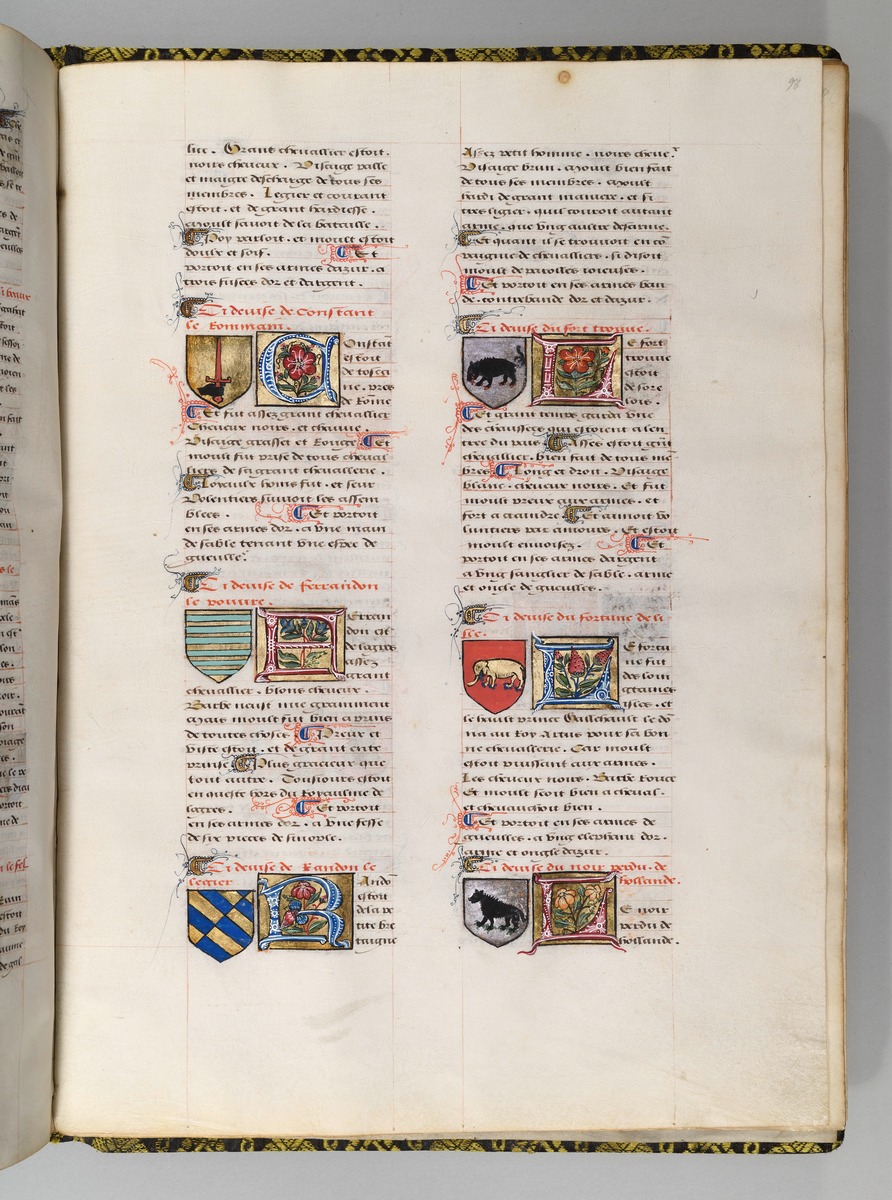 98
lite. Grant chevallier estoit.
noirs cheveux. Visaige palle
et maigre descharge de tous ses
membres. Legier et courant
estoit. et de grant hardiesse.
moult savoit de la bataille.
Poy parloit. et moult estoit
doulx et soif. Et
portoit en ses armes dazur. a
trois fusees dor et dargent.
Ci devise de Constant
le Rommain.
Onstãt
estoit
de tosca
ne. pres
de Rõme
Et fut assez grant chevallier
Cheveux noirs. et chauve.
Visaige grasset et Rouge. Et
moult fut prise de tous cheval
liers de sa grant chevallerie.
Loyaulx homs fut. et seur
Volentiers suivoit les assem
blees. Et portoit
en ses armes dor. a une main
de sable tenant une espee de
gueulle.
Ci devise de ferrandon
le pouure.
Erran
don est
de logres
assez
grant
chevallier. blons cheveux.
Barbe neust mie grantment
Mais moult fut bien aprins
de toutes choses. Preux et
viste estoit. et de grant entre
prinse. Plus gracieux que
tout autre. Tousiours estoit
en queste hors du Royaulme de
logres. Et portoit
en ses armes dor. a une fesse
de six pieces de sinople.
Ci devise de Randon le
legier
Andõ
estoit
de la pe
tite bre
taigne
Assez petit homme. noirs cheve.
Visaige brun. Moult bien fait
de tous ses membres. Moult
hardi de grant maniere. et si
tres ligier. quil couroit autant
arme. que ung aultre desarme.
Et quant il se trouvoit en cõ
paignie de chevalliers. si disoit
moult de parolles ioieuses.
Et portoit en ses armes ban
de. contrebande dor et dazur.
Ci devise du fort troune.
E fort
troune
estoit
de sore
lois.
Et grant temps garda une
des chaussees qui estoient a len
tree du pais. Asses estoit grãt
chevallier. bien fait de tous me
bres. Long et droit. Visaige
blanc. cheveux noirs. Et fut
moult preux aux armes. et
fort a craindre. Et aimoit vo
luntiers par amours. Et estoit
moult envoisez. Et
portoit en ses armes dargent
a ung sanglier de sable. arme
et ongle de gueulles.
Ci devise du fortune de li
sle.
E fortu
ne fut
des loin
gtaines
isles. et
le hault prince Gallehault le dõ
na au Roy Artus pour sa bon
ne chevallerie. Car moult
estoit puissant aux armes.
Les cheveux noirs. Barbe Rouge
Et moult seoit bien a cheval.
et chevauchoit bien.
Et portoit en ses armes de
gueulles. a ung elephant dor.
arme et ongle dazur.
Ci devise du noir perdu. de
hollande.
E noir
perdu de
hollande.